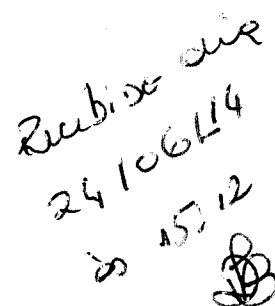 Recebido dia
24/06/14
às 15:12